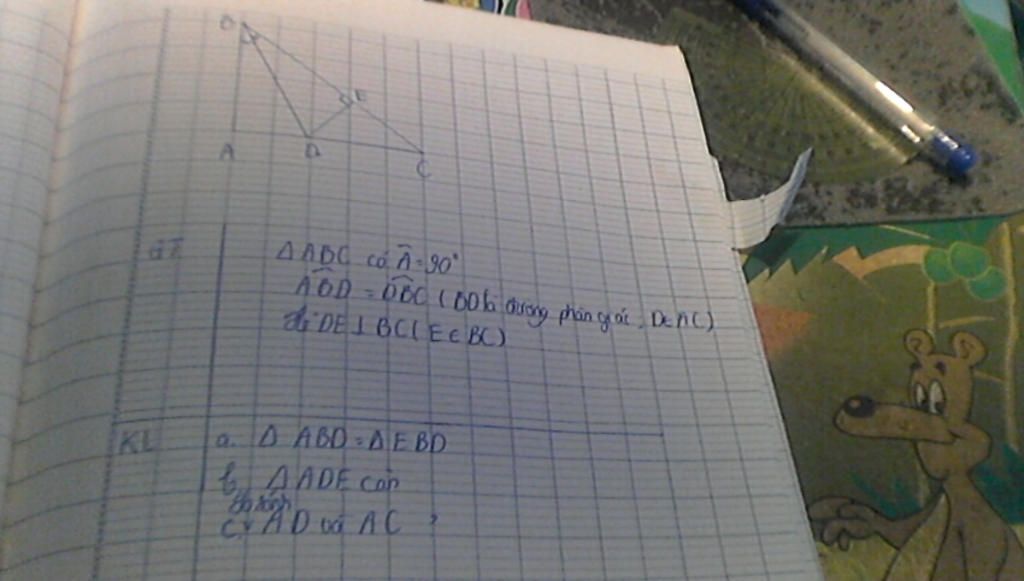 B
E
A
D
C
GT
Δ ABC có Â = 90°
ABD = DBC (BD là đường phân giác, D∈AC)
DE ⊥ BC (E ∈ BC)
KL
a. Δ ABD = Δ EBD
b. Δ ADE cân
so sánh
c. AD và AC ?